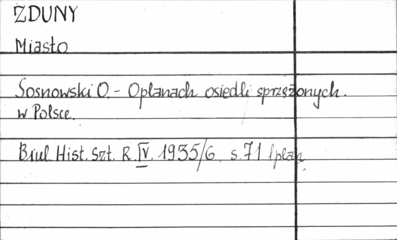 ZDUNY
Miasto
Sosnowski O. - O planach osiedli sprzężonych.
w Polsce.
Biul. Hist. Szt. R. IV. 1935/6, s. 71 1 plan,